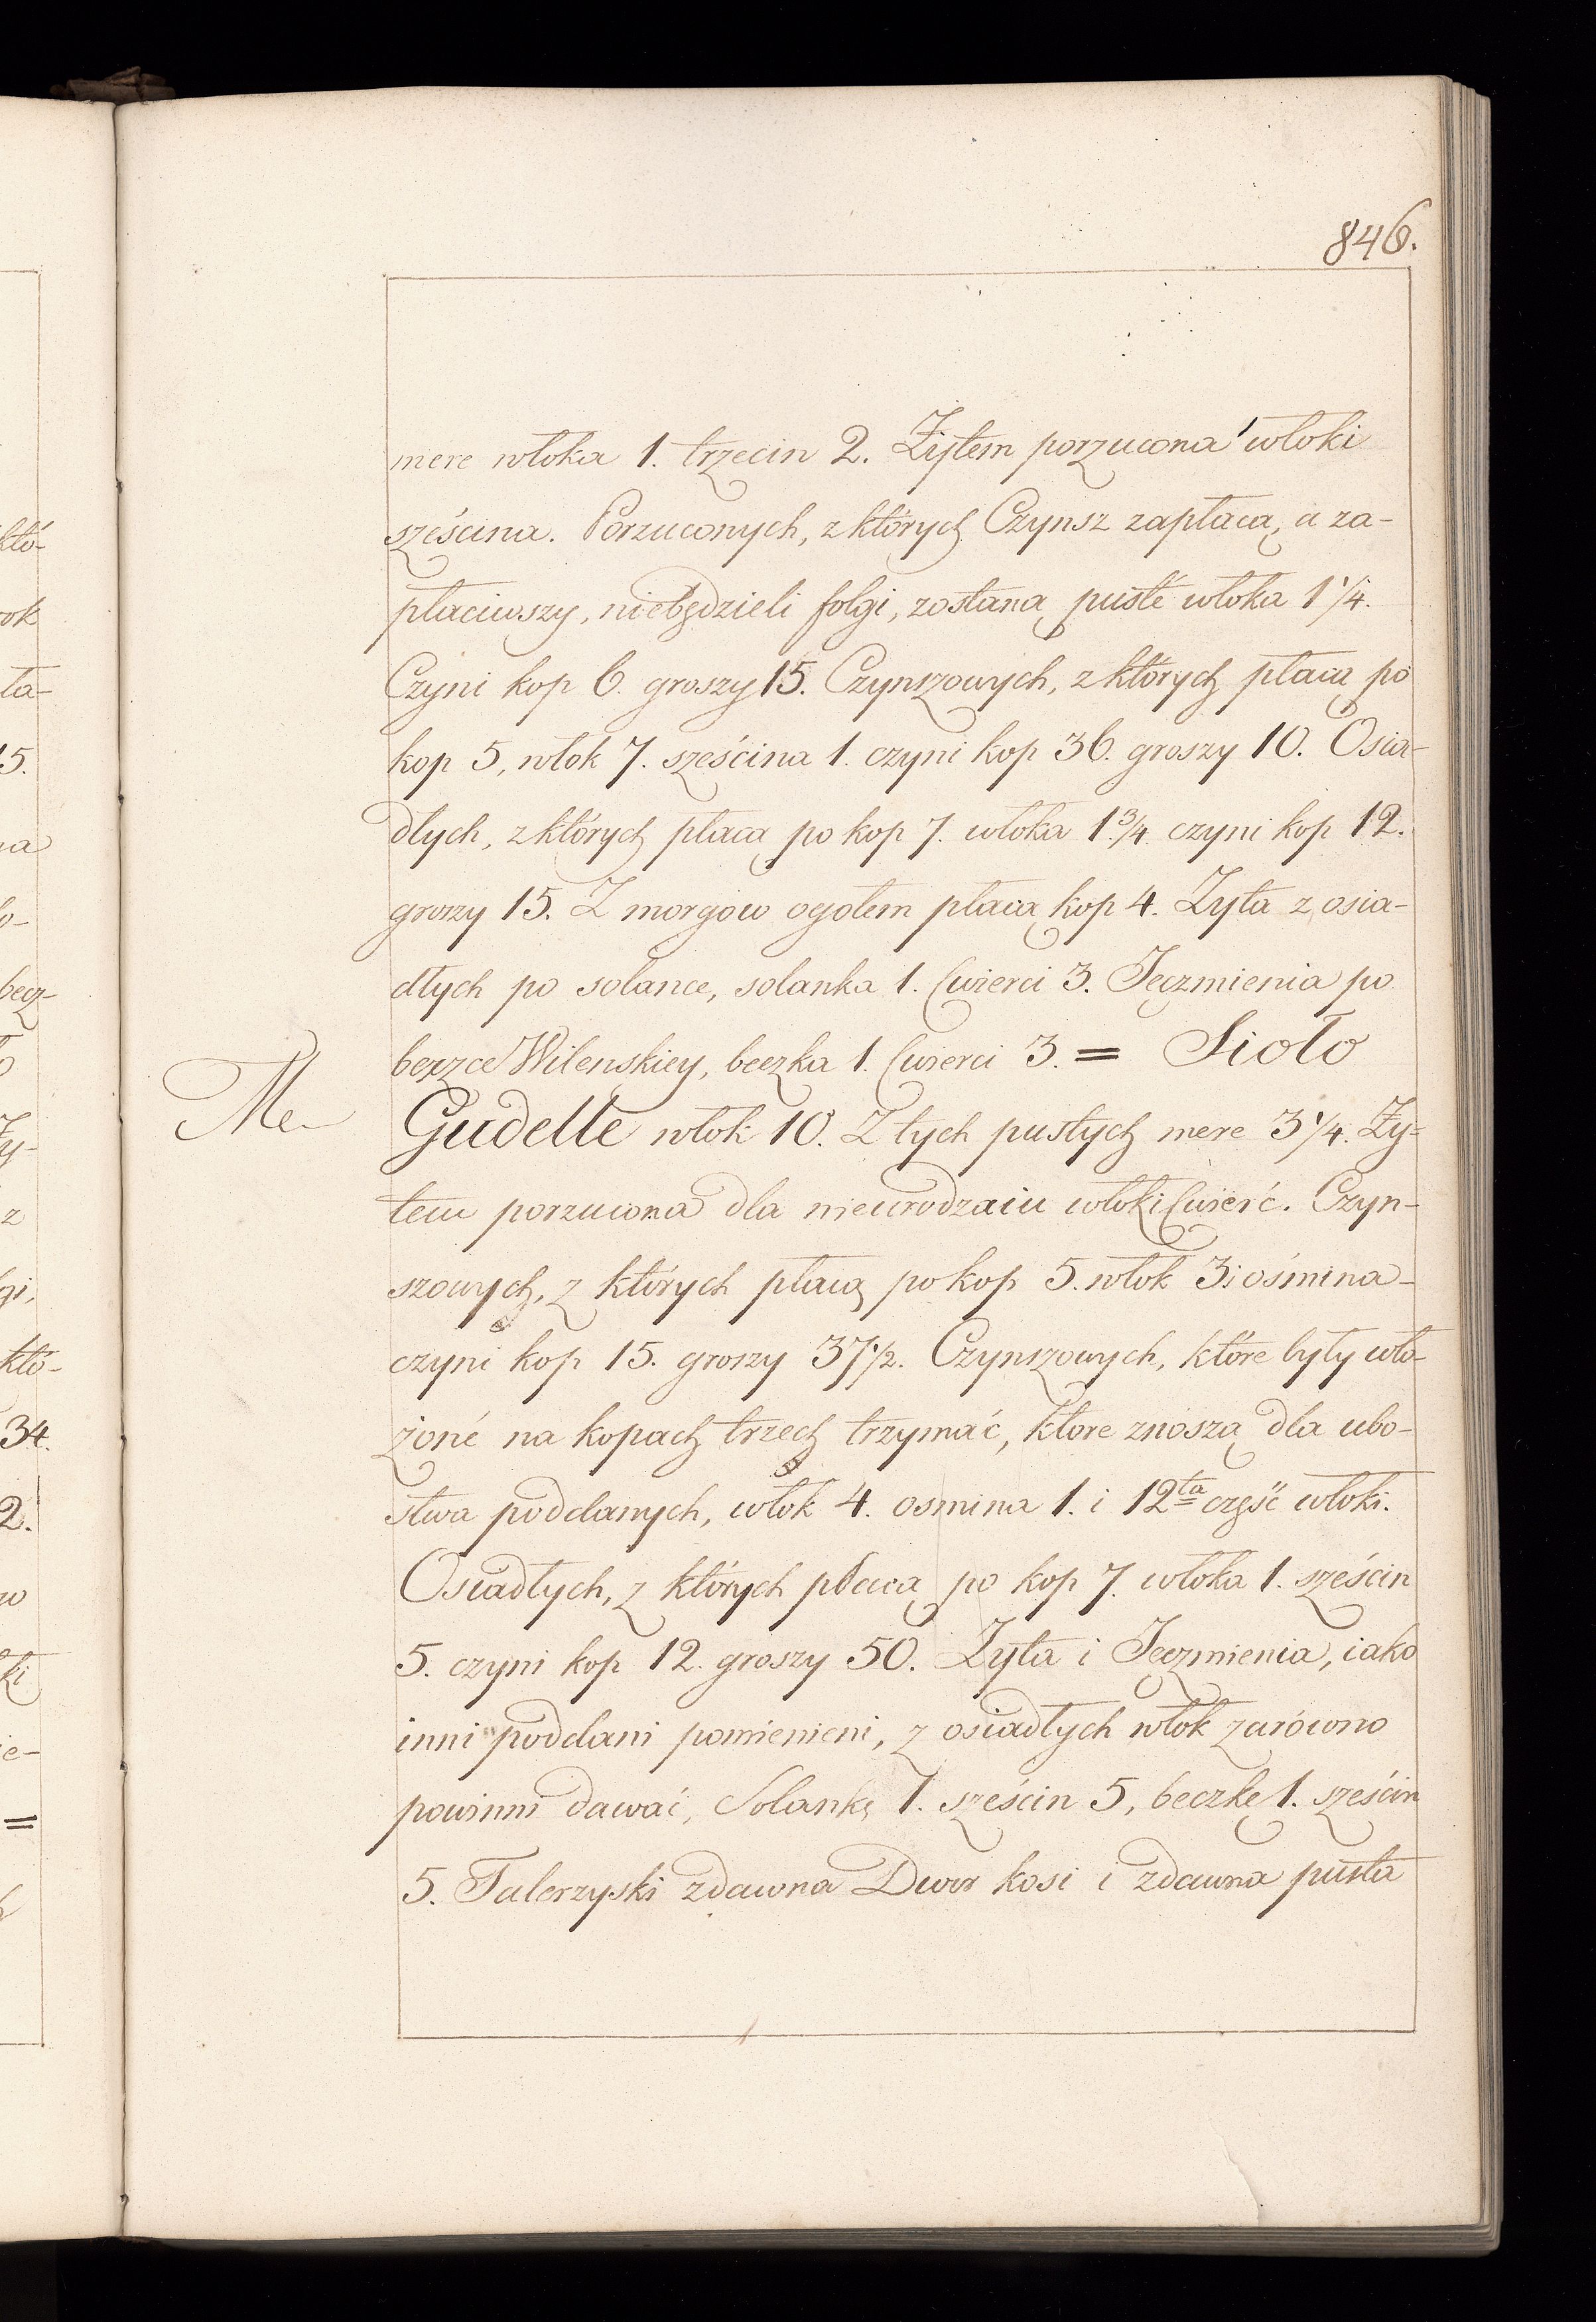 846.
mere włoka 1. trzecin 2. Żytem porzucona włoki
sześcina. Porzuconych, z których Czynsz zapłacą, a za-
płaciwszy, niebędzieli folgi, zostaną pusté włoka 1 1/4.
Czyni kop 6. groszy 15. Czynszowych, z których płacą po
kop 5, włok 7. sześcina 1. czyni kop 36. groszy 10. Osia-
dłych, z których płacą po kop 7. włoka 1. 3/4 czyni kop 12.
groszy 15. Z morgow ogołem płacą kop 4. Żyta z osia-
dłych po solance, solanka 1. Cwierci 3. Jęczmienia po
beczce Wilenskiey, beczka 1. Cwierci 3. = Sioło
Gudelle włok 10. Z tych pustych mere 3 1/4. Ży-
tem porzucona dla nieurodzaiu włoki Cwierć. Czyn-
szowych, z których płacą po kop 5. włok 3 i ośmina
czyni kop 15. groszy 37 1/2. Czynszowych, które były wło-
żoné na kopach trzech trzymać, które znoszą dla ubo-
stwa poddanych, włok 4. osmina 1. i 12ta część włoki.
Osiadłych, z których płacą po kop 7. włoka 1. sześcin
5. czyni kop 12. groszy 50. Żyta i Jęczmienia, iako
inni poddani pomienieni, z osiadłych włok zarówno
powinni dawać, Solankę 1. sześcin 5, beczkę 1. sześcin
5. Talerzyski zdawna Dwor kosi i zdawna pusta